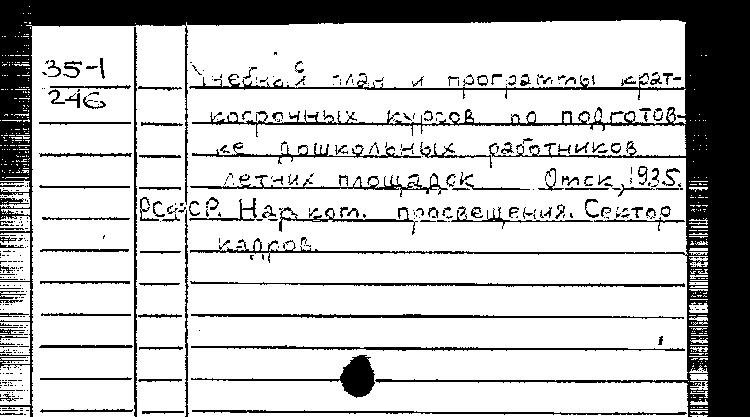 35-1
246
Учебный план и программы крат-
косрочных курсов по подготов-
ке дошкольных работников
летних площадок Омск, 1935.
РСФСР. Нар. ком. просвещения. Сектор
кадров.